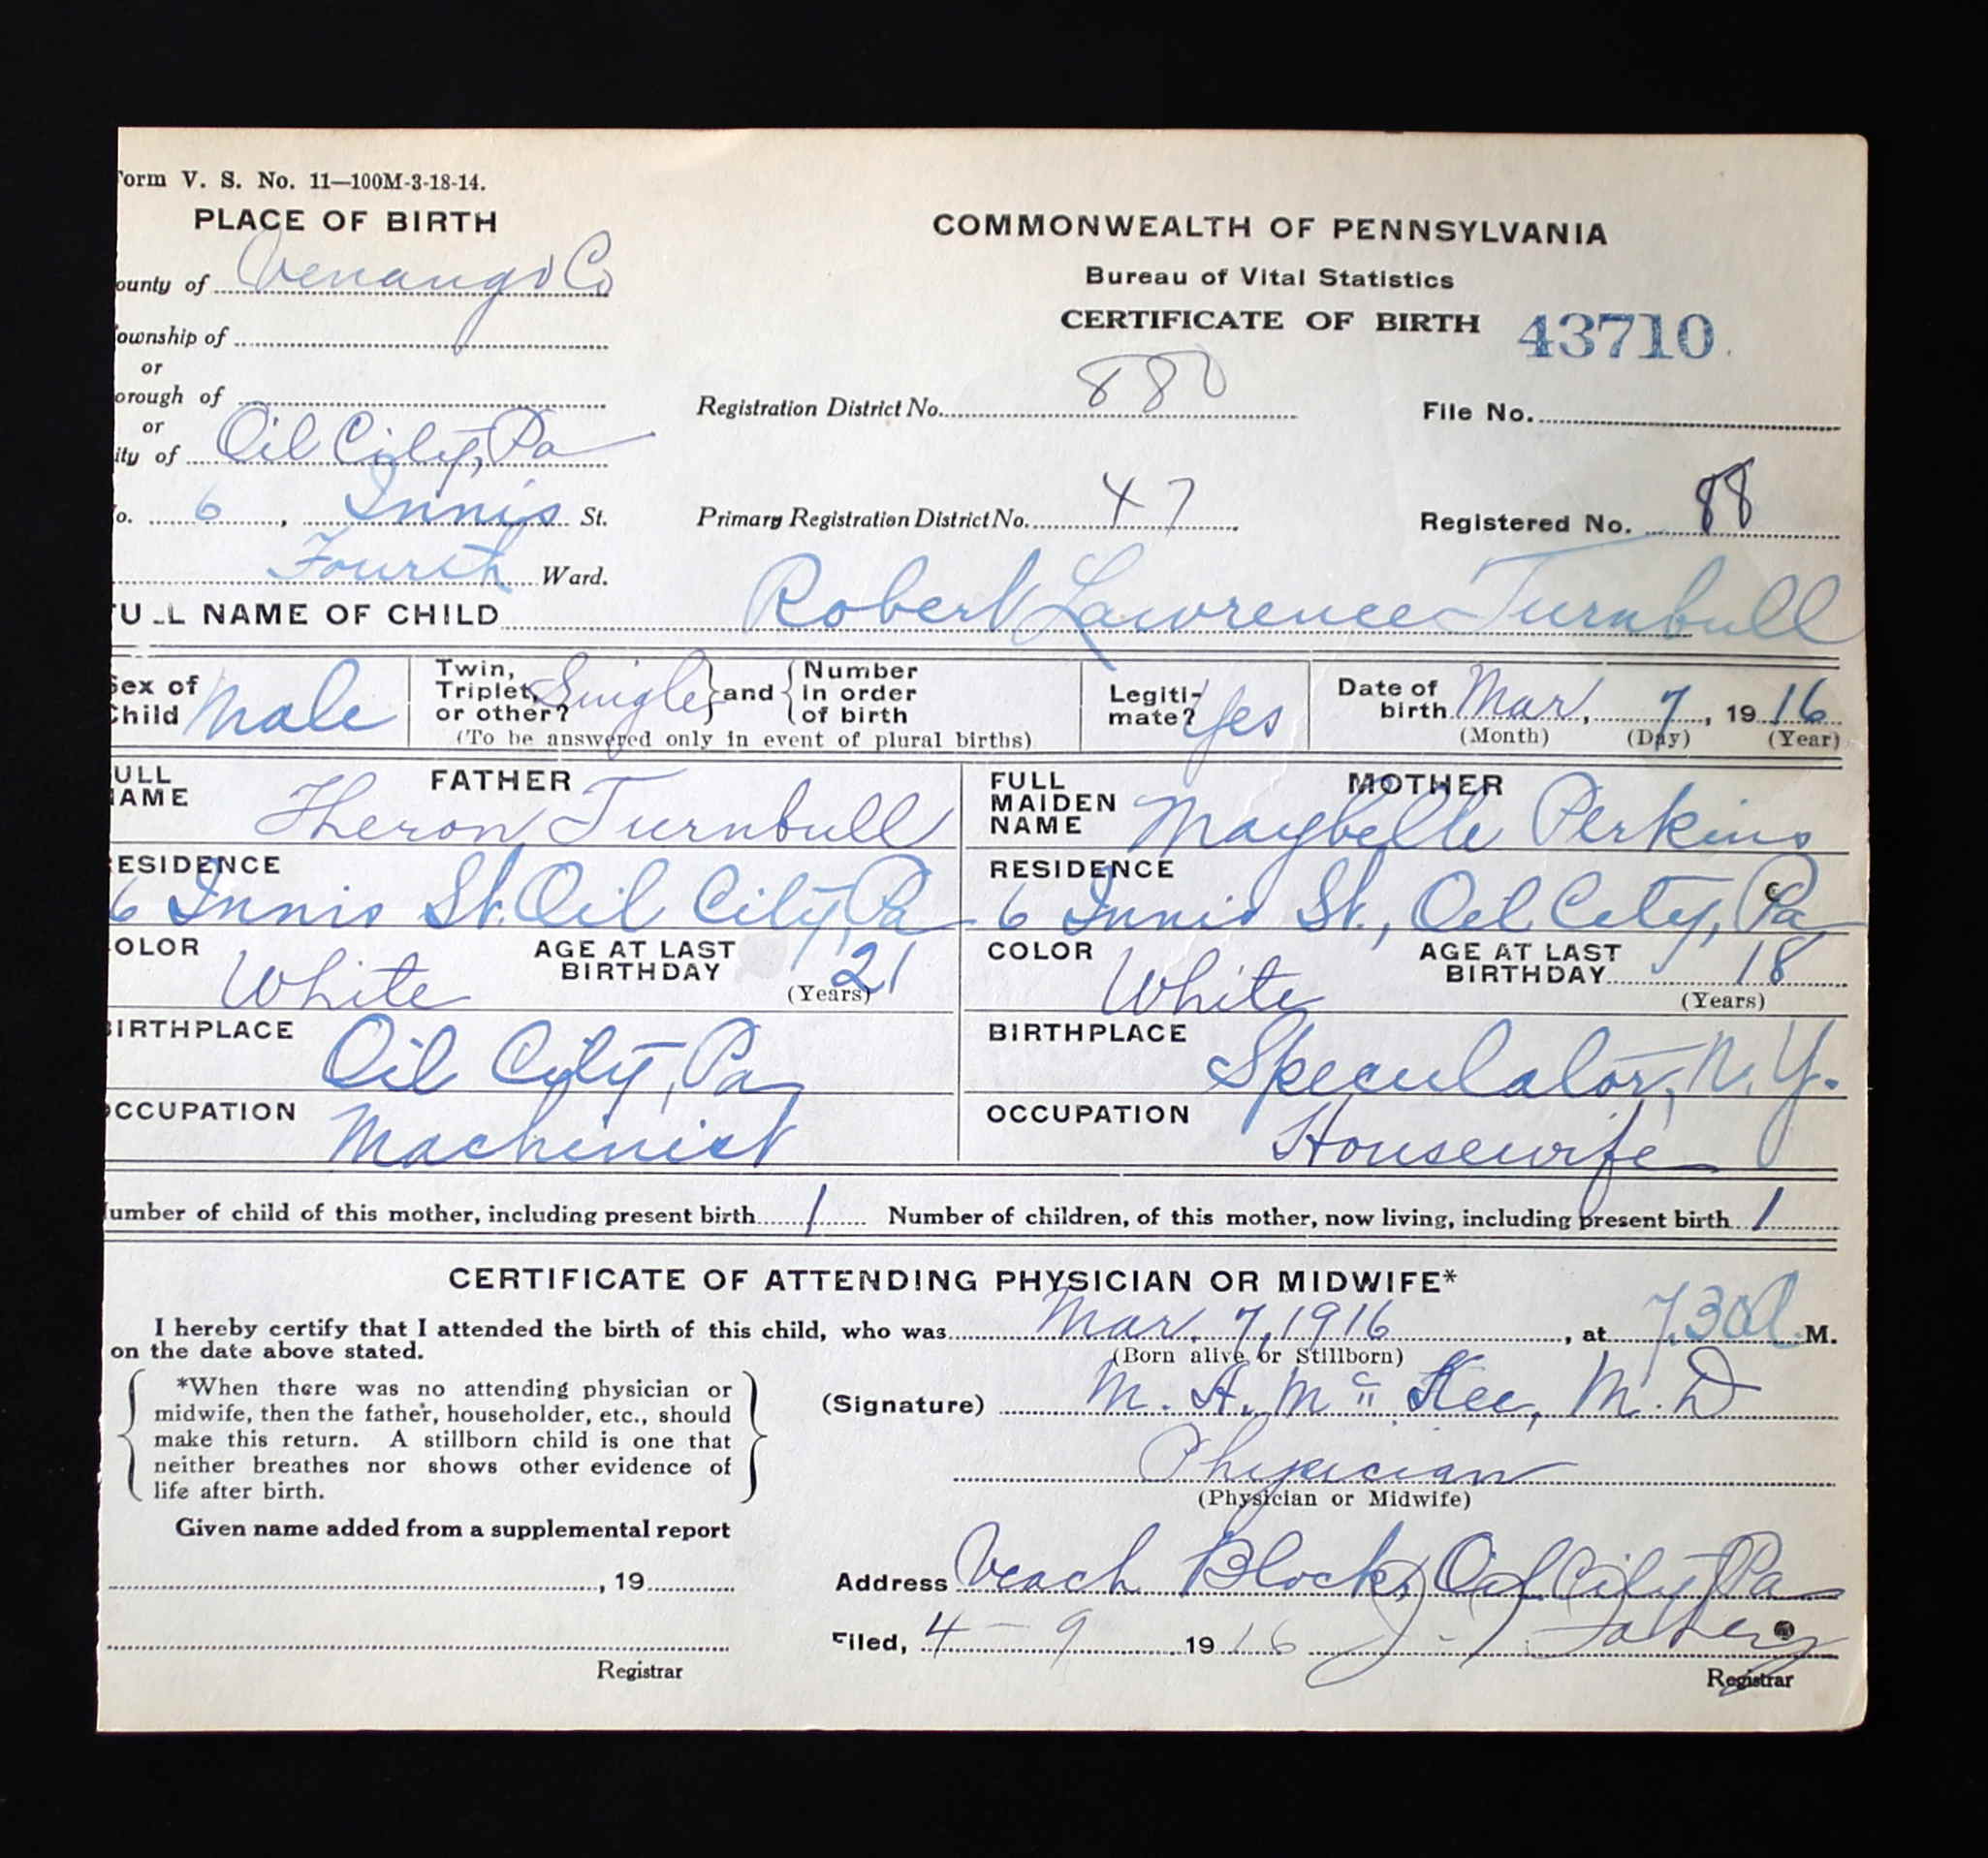 orm V. S. No. 11—100M-3-18-14.
PLACE OF BIRTH
ounty of Venango Co
ownship of
or
orough of
or
ity of Oil City, Pa
o. 6, Innis St.
Fourth Ward.
COMMONWEALTH OF PENNSYLVANIA
Bureau of Vital Statistics
CERTIFICATE OF BIRTH 43710
Registration District No. 880
File No.
Primary Registration District No. 47
Registered No. 88
FULL NAME OF CHILD Robert Lawrence Turnbull
Sex of Child Male
Twin, Triplet, or other? Single and Number in order of birth
(To be answered only in event of plural births)
Legiti-mate? Yes
Date of birth Mar, 7, 1916
(Month) (Day) (Year)
FATHER
ULL NAME Theron Turnbull
ESIDENCE
6 Innis St. Oil City, Pa
OLOR White
AGE AT LAST BIRTHDAY 21
(Years)
BIRTHPLACE
Oil City, Pa
OCCUPATION
Machinist
MOTHER
FULL MAIDEN NAME Maybelle Perkins
RESIDENCE
6 Innis St., Oil City, Pa
COLOR White
AGE AT LAST BIRTHDAY 18
(Years)
BIRTHPLACE
Speculator, N. Y.
OCCUPATION
Housewife
umber of child of this mother, including present birth 1 Number of children, of this mother, now living, including present birth 1
CERTIFICATE OF ATTENDING PHYSICIAN OR MIDWIFE*
I hereby certify that I attended the birth of this child, who was Mar. 7, 1916, at 7.30 A. M.
on the date above stated.
(Born alive or Stillborn)
*When there was no attending physician or
midwife, then the father, householder, etc., should
make this return. A stillborn child is one that
neither breathes nor shows other evidence of
life after birth.
Given name added from a supplemental report
, 19
Registrar
(Signature) M. A. Mc Kee, M. D
Physician
(Physician or Midwife)
Address Veach Block, Oil City Pa
Filed, 4-9 1916
Registrar